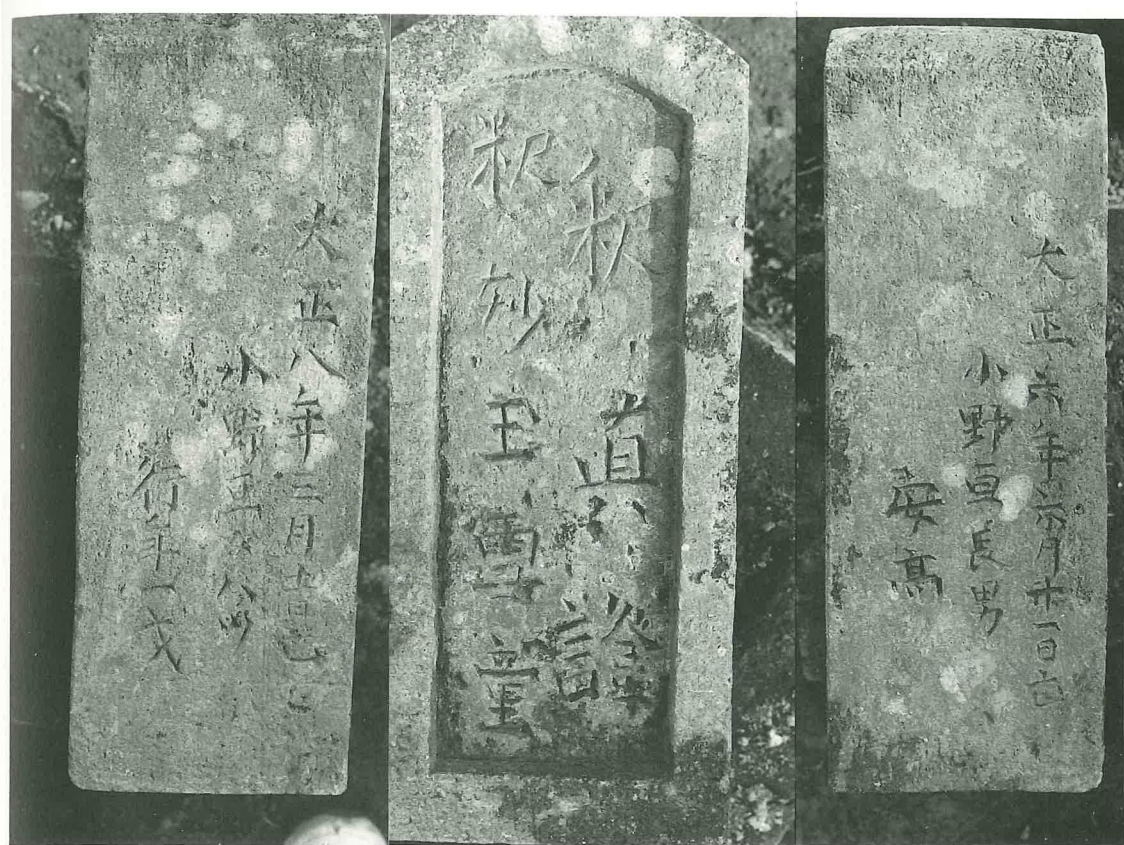 大正六年六月十一日亡
小野亘長男
安高
釈真
釈妙玉雪童
大正八年三月
小野亘
行年一才